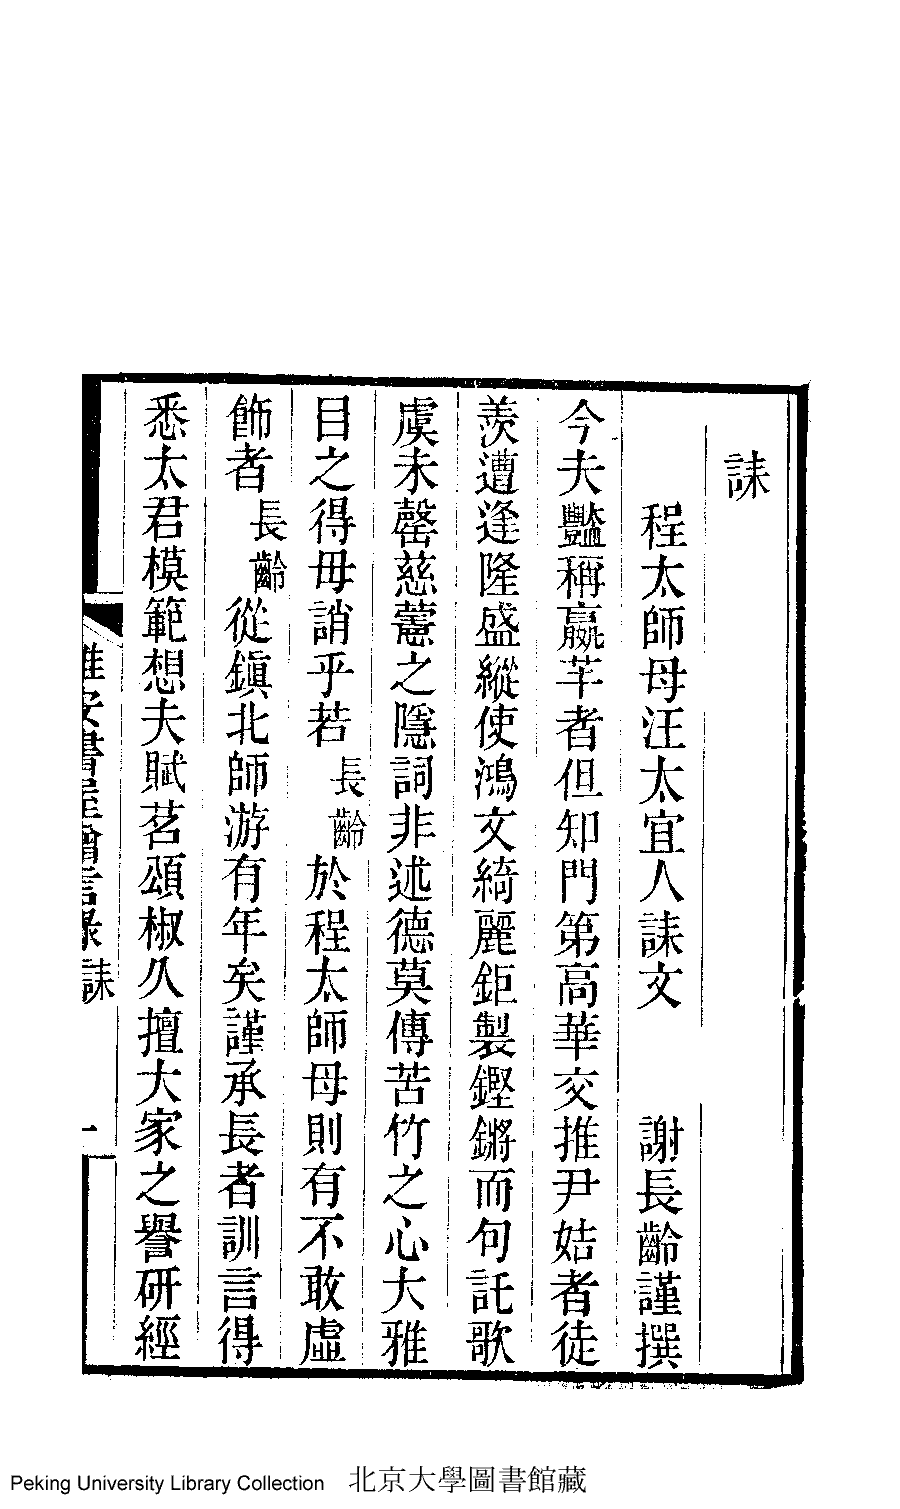 誄
程太師母汪太宜人誄文　謝長齡謹撰
今夫豔稱嬴芊者但知門第高華交推尹姞者徒
羨遭逢隆盛縱使鴻文綺麗鉅製鏗鏘而句託歌
虞未罄慈蕙之隱詞非述德莫傳苦竹之心大雅
目之得毋誚乎若長齡於程太師母則有不敢虛
飾者長齡從鎮北師游有年矣謹承長者訓言得
悉太君模範想夫賦茗頌椒久擅大家之譽研經
惟安書屋贈言錄　誄　一
Peking University Library Collection　北京大學圖書館藏